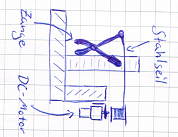 Zange
Stahlseil
DC-Motor